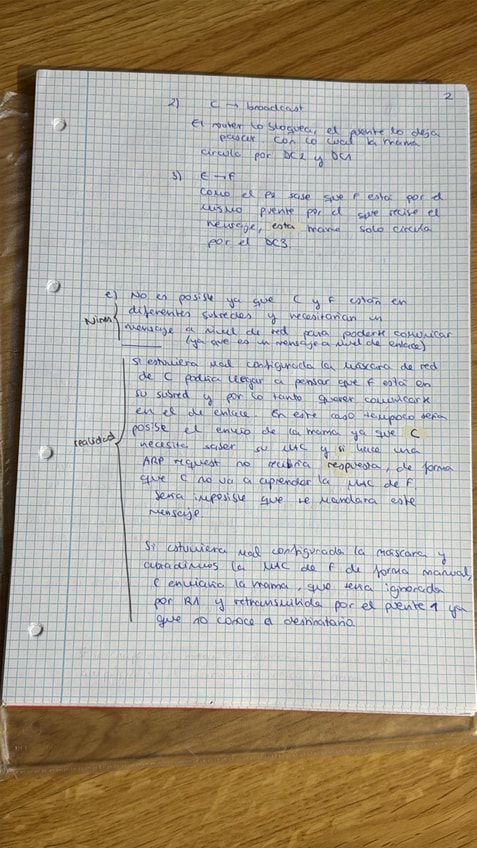 2
2) C → broadcast
El router lo bloquea, el puente lo deja
pasar. Con lo cual la trama
circula por DC2 y DC1
3) E → F
Como el P2 sabe que F está por el
mismo puente por el que recibe el
mensaje, esta trama solo circula
por el DC3.
e) No es posible ya que C y F están en
diferentes subredes y necesitarían un
mensaje a nivel de red para poderse comunicar
(ya que es un mensaje a nivel de enlace)
Si estuviera mal configurada la máscara de red
de C podría llegar a pensar que F está en
su subred y por lo tanto querer comunicarse
en el de enlace. En este caso tampoco sería
posible el envío de la trama ya que C
realidad
necesita saber su MAC y si hace una
ARP request no recibiría respuesta, de forma
que C no va a aprender la MAC de F
sería imposible que se mandara este
mensaje
Si estuviera mal configurada la máscara y
añadimos la MAC de F de forma manual,
C enviaría la trama, que sería ignorada
por R1 y retransmitida por el puente 1 ya
que no conoce al destinatario